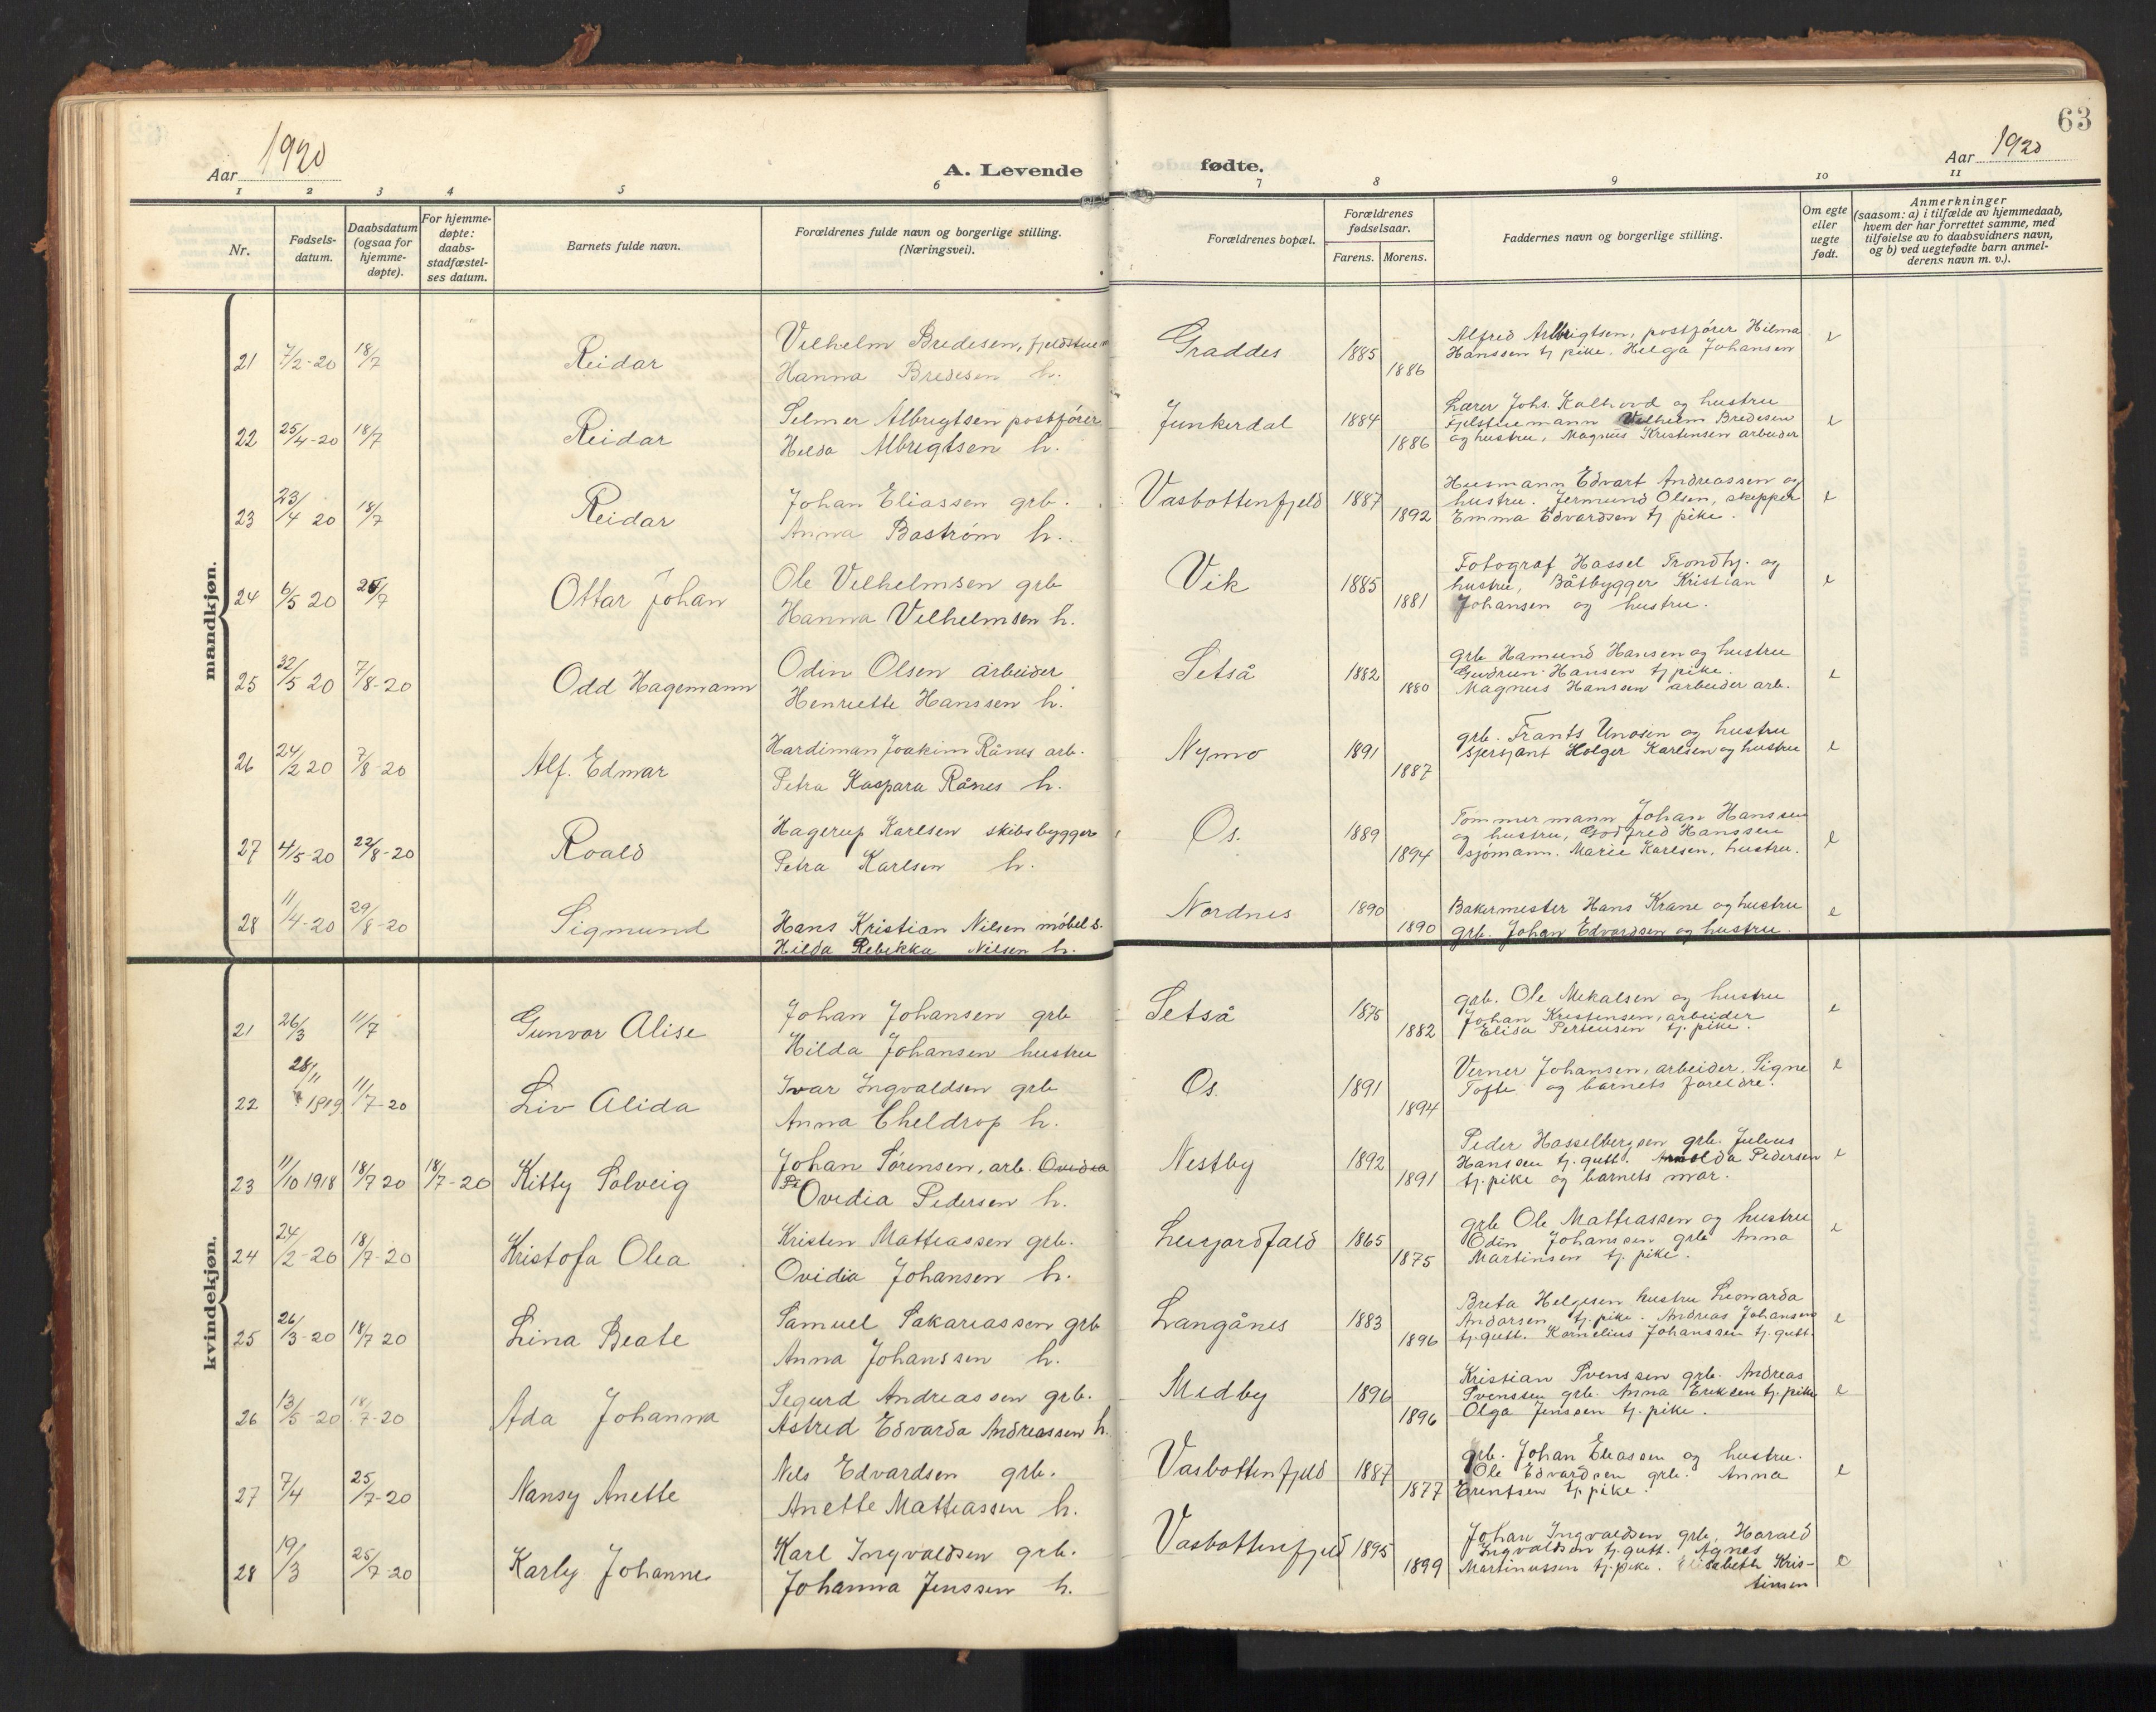 63
Aar 1920
A. Levende fødte.
Aar 1920
1 2 3 4 5 6 7 8 9 10 11
Nr.
Fødsels-
datum.
Daabsdatum
(ogsaa for
hjemme-
døpte).
For hjemme-
døpte:
daabs-
stadfæstel-
ses datum.
Barnets fulde navn.
Forældrenes fulde navn og borgerlige stilling.
(Næringsvei).
Forældrenes bopæl.
Forældrenes
fødselsaar.
Farens. Morens.
Faddernes navn og borgerlige stilling.
Om egte
eller
uegte
født.
Anmerkninger
(saasom: a) i tilfælde av hjemmedaab,
hvem der har forrettet samme, med
tilføielse av to daabsvidners navn,
og b) ved uegtefødte barn anmel-
derens navn m. v.).
mandkjøn.
21 7/2-20 18/7 Reidar
Vilhelm Bredesen, fjeldstuem
Hanna Bredesen h.
Graddes 1885 1886
Alfred Albrigtsen, postfører Hilma
Hanssen tj pike. Helga Johansen
e
22 25/4-20 18/7 Reidar
Selmer Albrigtsen postfører
Helda Albrigtsen h.
Junkerdal 1884 1886
Lærer Johs. Kalhovd og hustru
Fjelstuemann Vilhelm Bredesen
og hustru, Magnus Kristensen arbeider
e
23 23/4 20 18/7 Reidar
Johan Eliassen grb.
Anna Bostrøm h.
Vasbottenfjeld 1887 1892
Husmann Edvart Andreassen og
hustru. Jermund Olsen, skipper
Emma Edvardsen tj pike.
e
24 6/5 20 25/7 Ottar Johan
Ole Vilhelmsen grb
Hanna Vilhelmsen h.
Vik 1885 1881
Fotograf Hassel Trondhj. og
hustru, Båtbygger Kristian
Johansen og hustru.
e
25 32/5 20 7/8-20 Odd Hagemann
Odin Olsen arbeider
Henriette Hanssen h.
Setså 1882 1880
grb Hamund Hansen og hustru
Gudrun Hansen tj pike.
Magnus Hanssen arbeider arb.
e
26 24/2 20 7/8-20 Alf. Edmar
Hardiman Joakim Rånes arb.
Petra Kaspara Rånes h.
Nymo 1891 1887
grb. Frants Unosin og hustru
sjersjant Holger Karlsen og hustru
e
27 4/5-20 22/8-20 Roald
Hagerup Karlsen skibsbygger
Petra Karlsen h.
Os. 1889 1894
Tømmermann Johan Hanssen
og hustru, Godfred Hanssen
sjømann. Marie Karlsen, hustru.
e
28 11/4-20 29/8-20 Sigmund
Hans Kristian Nilsen møbels.
Hilda Rebekka Nilsen h.
Nordnes 1890 1890
Bakermester Hans Krane og hustru
grb. Johan Edvardsen og hustru.
e
kvindekjøn.
21 26/3 11/7 Gunvor Alise
Johan Johansen grb
Hilda Johansen hustru
Setså 1875 1882
grb. Ole Mikalsen og hustru
Johan Kristensen, arbeider
Elisa Pertensen tj. pike.
e
22 28/11 1919 11/7-20 Liv Alida
Ivar Ingvaldsen grb
Anna Cheldrop h.
Os. 1891 1894
Verner Johansen, arbeider. Signe
Tofte og barnets foreldre.
e
23 11/10 1918 18/7 20 18/7-20 Kitty Solveig
Johan Sørensen, arb. Ovidia
Pe Ovidia Pedersen h.
Nestby 1892 1891
Peder Hasselbergsen grb. Julius
Hanssen tj. gutt. Arnolda Pedersen
tj. pike og barnets mor.
e
24 24/2-20 18/7-20 Kristofa Olea
Kristen Mattiassen grb.
Ovidia Johansen h.
1865 1875
grb Ole Mattiassen og hustru
Odin Johanssen grb Anna
Martinsen tj. pike.
e
25 26/3-20 18/7 20 Lina Beate
Samuel Sakariassen grb
Anna Johanssen h.
Langånes 1883 1896
Breta Helgesen hustru Leonarda
Andorsen tj. pike. Andreas Johansen
tj. gutt. Kornelius Johanssen tj. gutt.
e
26 13/5-20 18/7-20 Ada Johanna
Segurd Andreassen grb.
Astred Edvarda Andreassen h.
Medby 1896 1896
Kristian Svenssen grb. Andreas
Svenssen grb. Anna Eriksen tj. pike
Olga Jenssen tj. pike.
e
27 7/4 25/7-20 Nansy Anette
Nils Edvardsen grb.
Anette Mattiassen h.
Vasbottenfjeld 1887 1877
grb. Johan Eleassen og hustru.
Ole Edvardsen grb. Anna
Erentsen tj pike.
e
28 19/3 25/7-20 Karly Johanne
Karl Ingvaldsen grb.
Johanna Jenssen h.
Vasbottenfjeld 1895 1899
Johan Ingvaldsen grb, Harald
Ingvaldsen tj. gutt. Agnes
Martinussen tj. pike. Elisabeth Kris-
tinsen
e